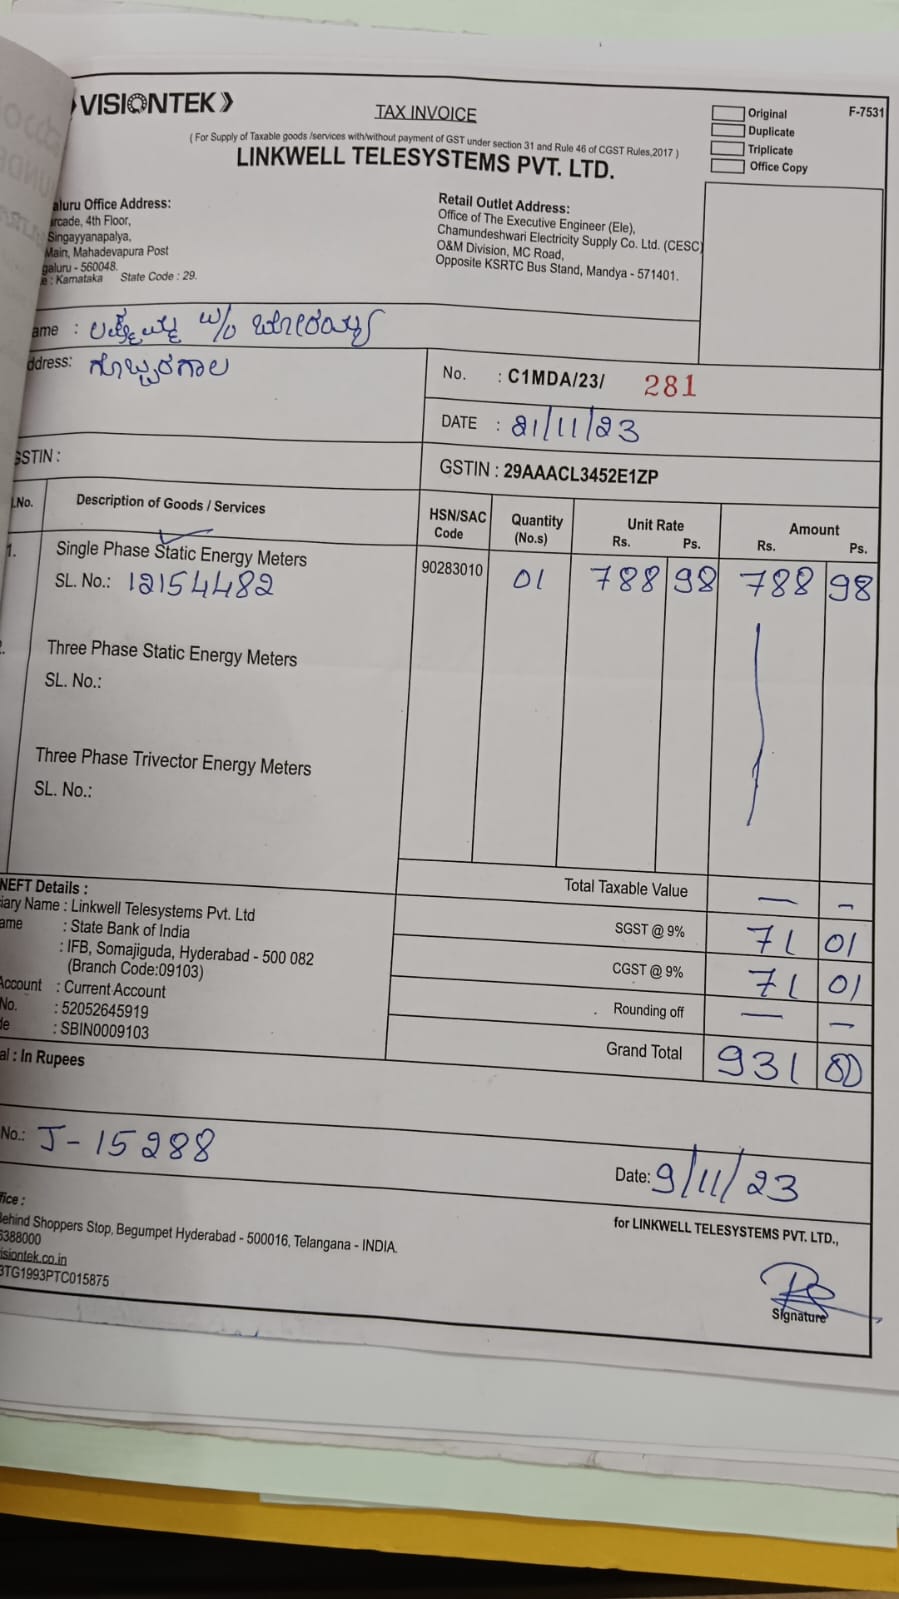 VISIONTEK
TAX INVOICE
Original
F-7531
Duplicate
Triplicate
Office Copy
( For Supply of Taxable goods /services with/without payment of GST under section 31 and Rule 46 of CGST Rules,2017 )
LINKWELL TELESYSTEMS PVT. LTD.
aluru Office Address:
rcade, 4th Floor,
Singayyanapalya,
Main, Mahadevapura Post
galuru - 560048.
e : Karnataka State Code : 29.
Retail Outlet Address:
Office of The Executive Engineer (Ele),
Chamundeshwari Electricity Supply Co. Ltd. (CESC)
O&M Division, MC Road,
Opposite KSRTC Bus Stand, Mandya - 571401.
ame : W/o
ddress: ಗೊಬ್ಬರಗಾಲ
No. : C1MDA/23/ 281
DATE : 21/11/23
GSTIN :
GSTIN : 29AAACL3452E1ZP
.No. Description of Goods / Services HSN/SAC Code Quantity (No.s) Unit Rate Rs. Ps. Amount Rs. Ps.
1. Single Phase Static Energy Meters 90283010 01 788 98 788 98
SL. No.: 12154482
2. Three Phase Static Energy Meters
SL. No.:
Three Phase Trivector Energy Meters
SL. No.:
Total Taxable Value — -
SGST @ 9% 71 01
CGST @ 9% 71 01
Rounding off — —
Grand Total 931 00
NEFT Details :
ciary Name : Linkwell Telesystems Pvt. Ltd
ame : State Bank of India
: IFB, Somajiguda, Hyderabad - 500 082
(Branch Code:09103)
Account : Current Account
No. : 52052645919
de : SBIN0009103
al : In Rupees
No.: J-15288
Date: 9/11/23
ffice :
Behind Shoppers Stop, Begumpet Hyderabad - 500016, Telangana - INDIA.
6388000
isiontek.co.in
3TG1993PTC015875
for LINKWELL TELESYSTEMS PVT. LTD.,
Signature